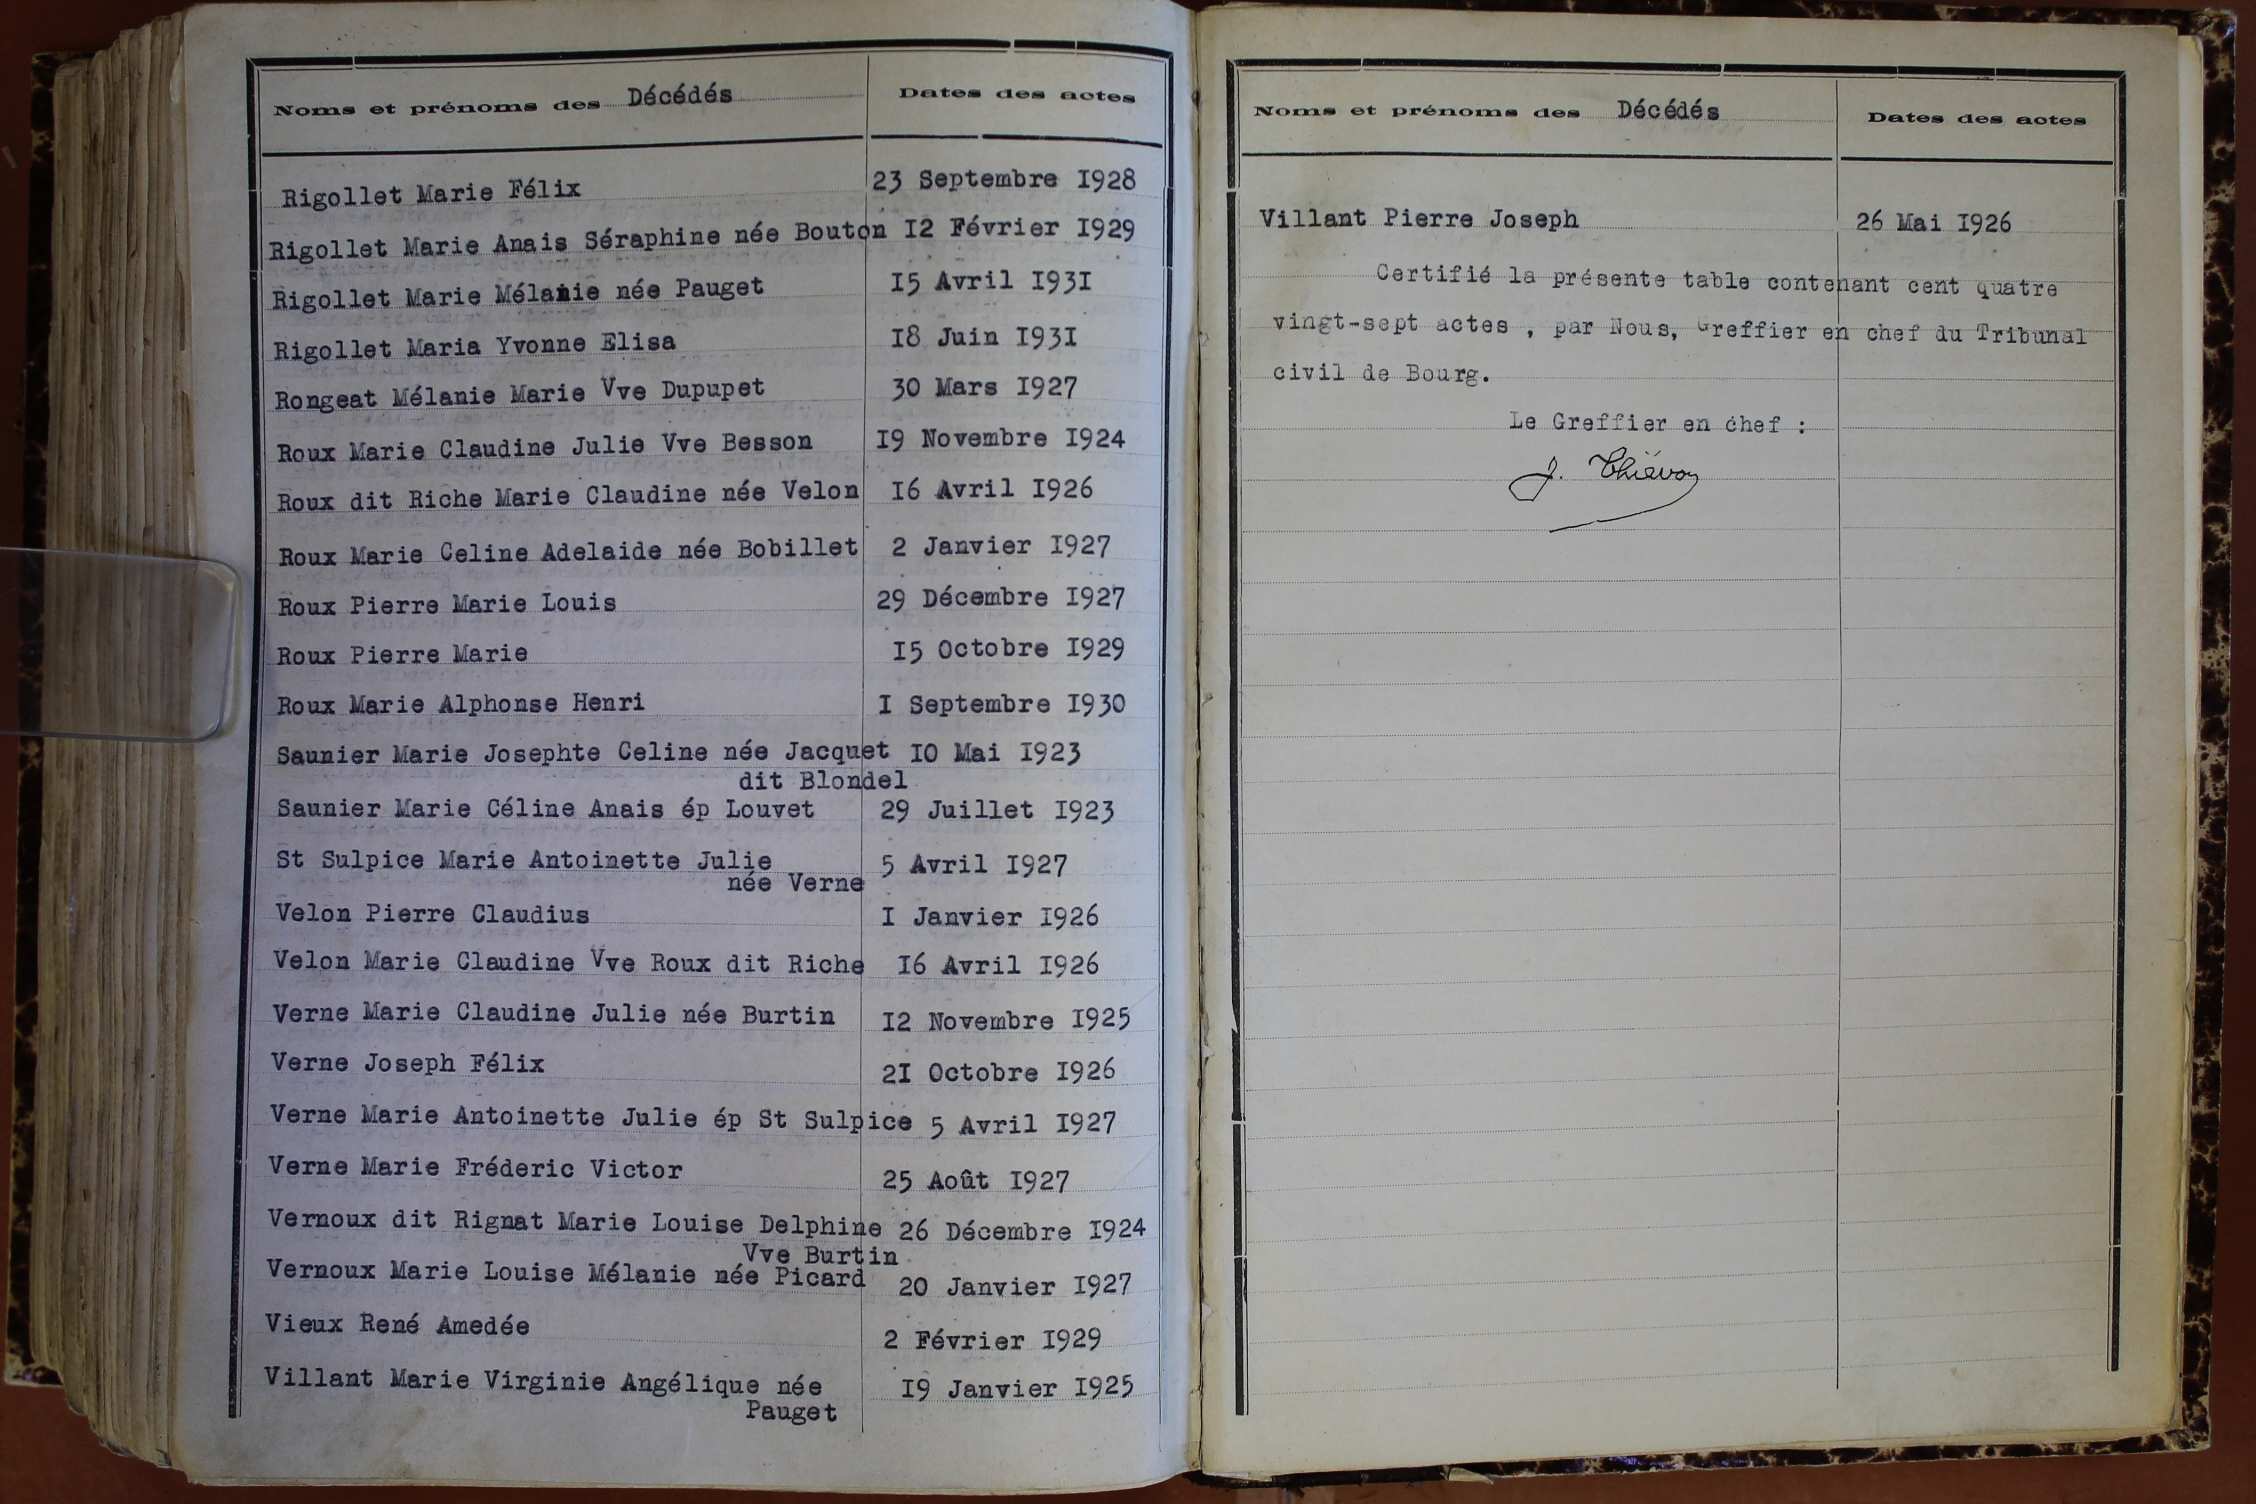 Noms et prénoms des Décédés Dates des actes
Rigollet Marie Félix 23 Septembre I928
Rigollet Marie Anais Séraphine née Bouton I2 Février I929
Rigollet Marie Mélanie née Pauget I5 Avril I93I
Rigollet Maria Yvonne Elisa I8 Juin I93I
Rongeat Mélanie Marie Vve Dupupet 30 Mars I927
Roux Marie Claudine Julie Vve Besson I9 Novembre I924
Roux dit Riche Marie Claudine née Velon I6 Avril I926
Roux Marie Celine Adelaide née Bobillet 2 Janvier I927
Roux Pierre Marie Louis 29 Décembre I927
Roux Pierre Marie I5 Octobre I929
Roux Marie Alphonse Henri I Septembre I930
Saunier Marie Josephte Celine née Jacquet IO Mai I923
dit Blondel
Saunier Marie Céline Anais ép Louvet 29 Juillet I923
St Sulpice Marie Antoinette Julie 5 Avril I927
née Verne
Velon Pierre Claudius I Janvier I926
Velon Marie Claudine Vve Roux dit Riche I6 Avril I926
Verne Marie Claudine Julie née Burtin I2 Novembre I925
Verne Joseph Félix 2I Octobre I926
Verne Marie Antoinette Julie ép St Sulpice 5 Avril I927
Verne Marie Fréderic Victor 25 Août I927
Vernoux dit Rignat Marie Louise Delphine 26 Décembre I924
Vve Burtin
Vernoux Marie Louise Mélanie née Picard 20 Janvier I927
Vieux René Amedée 2 Février I929
Villant Marie Virginie Angélique née I9 Janvier I925
Pauget
Noms et prénoms des Décédés Dates des actes
Villant Pierre Joseph 26 Mai I926
Certifié la présente table contenant cent quatre
vingt-sept actes , par Nous, Greffier en chef du Tribunal
civil de Bourg.
Le Greffier en chef :
J.